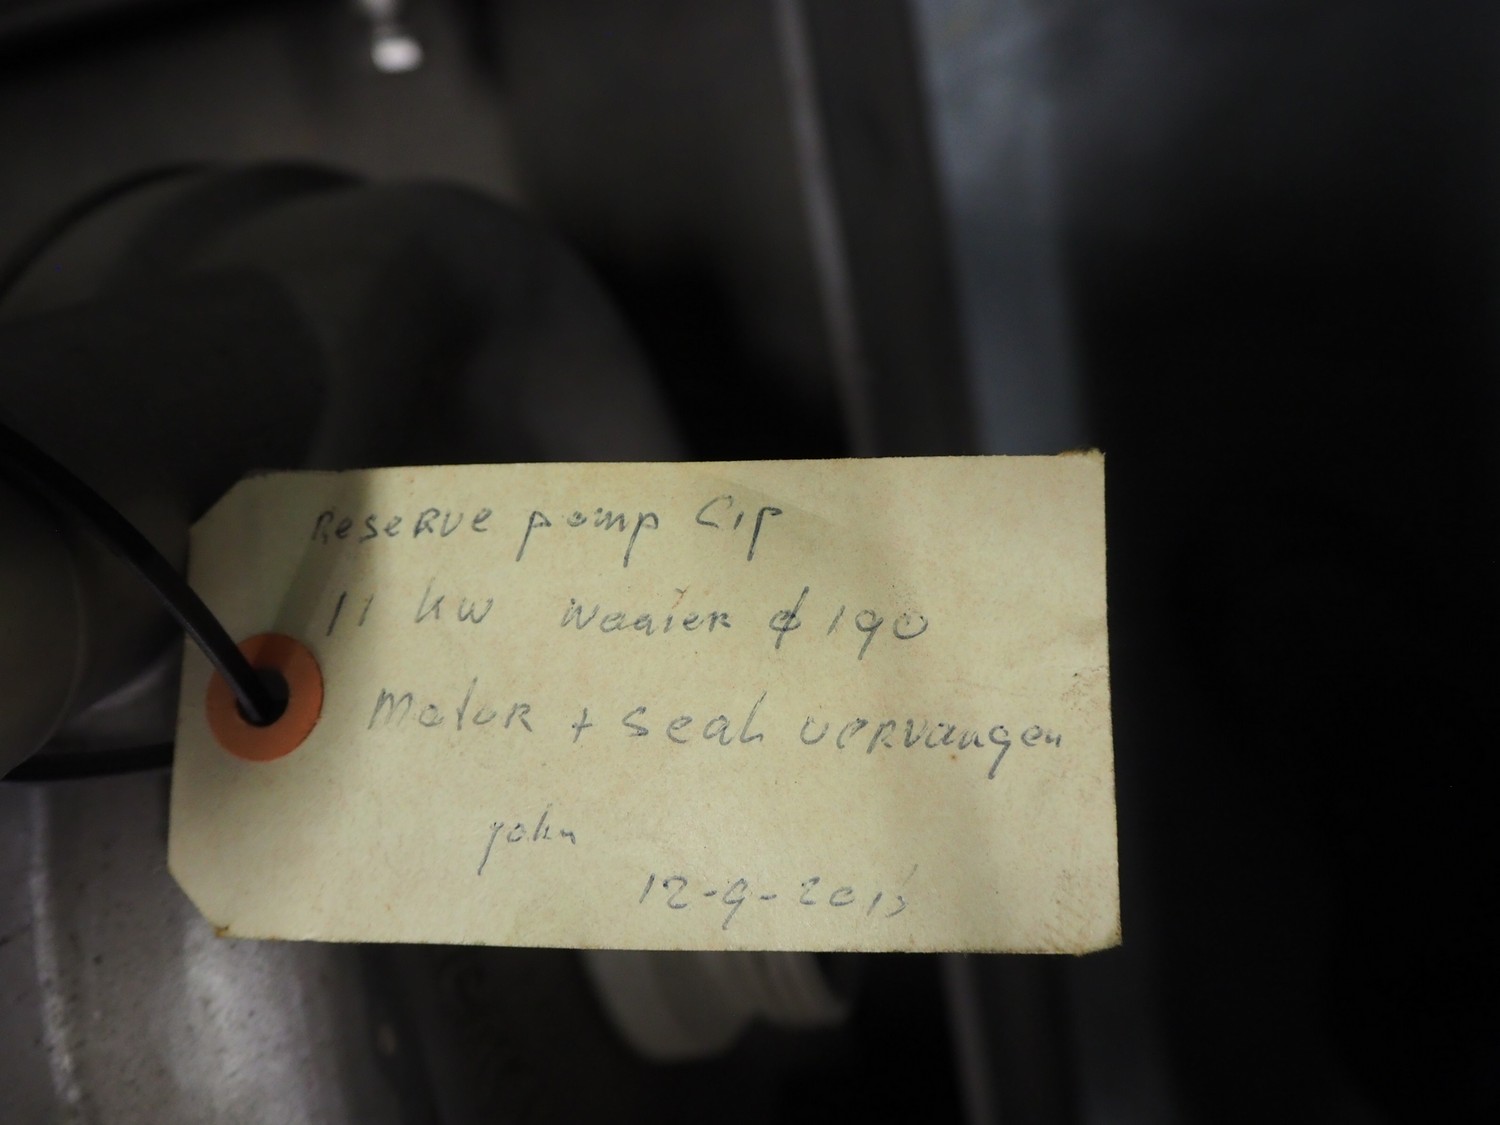 Reserve pomp Cip
11 kw waaier ø 190
Motor + Seal vervangen
John
12-9-2015